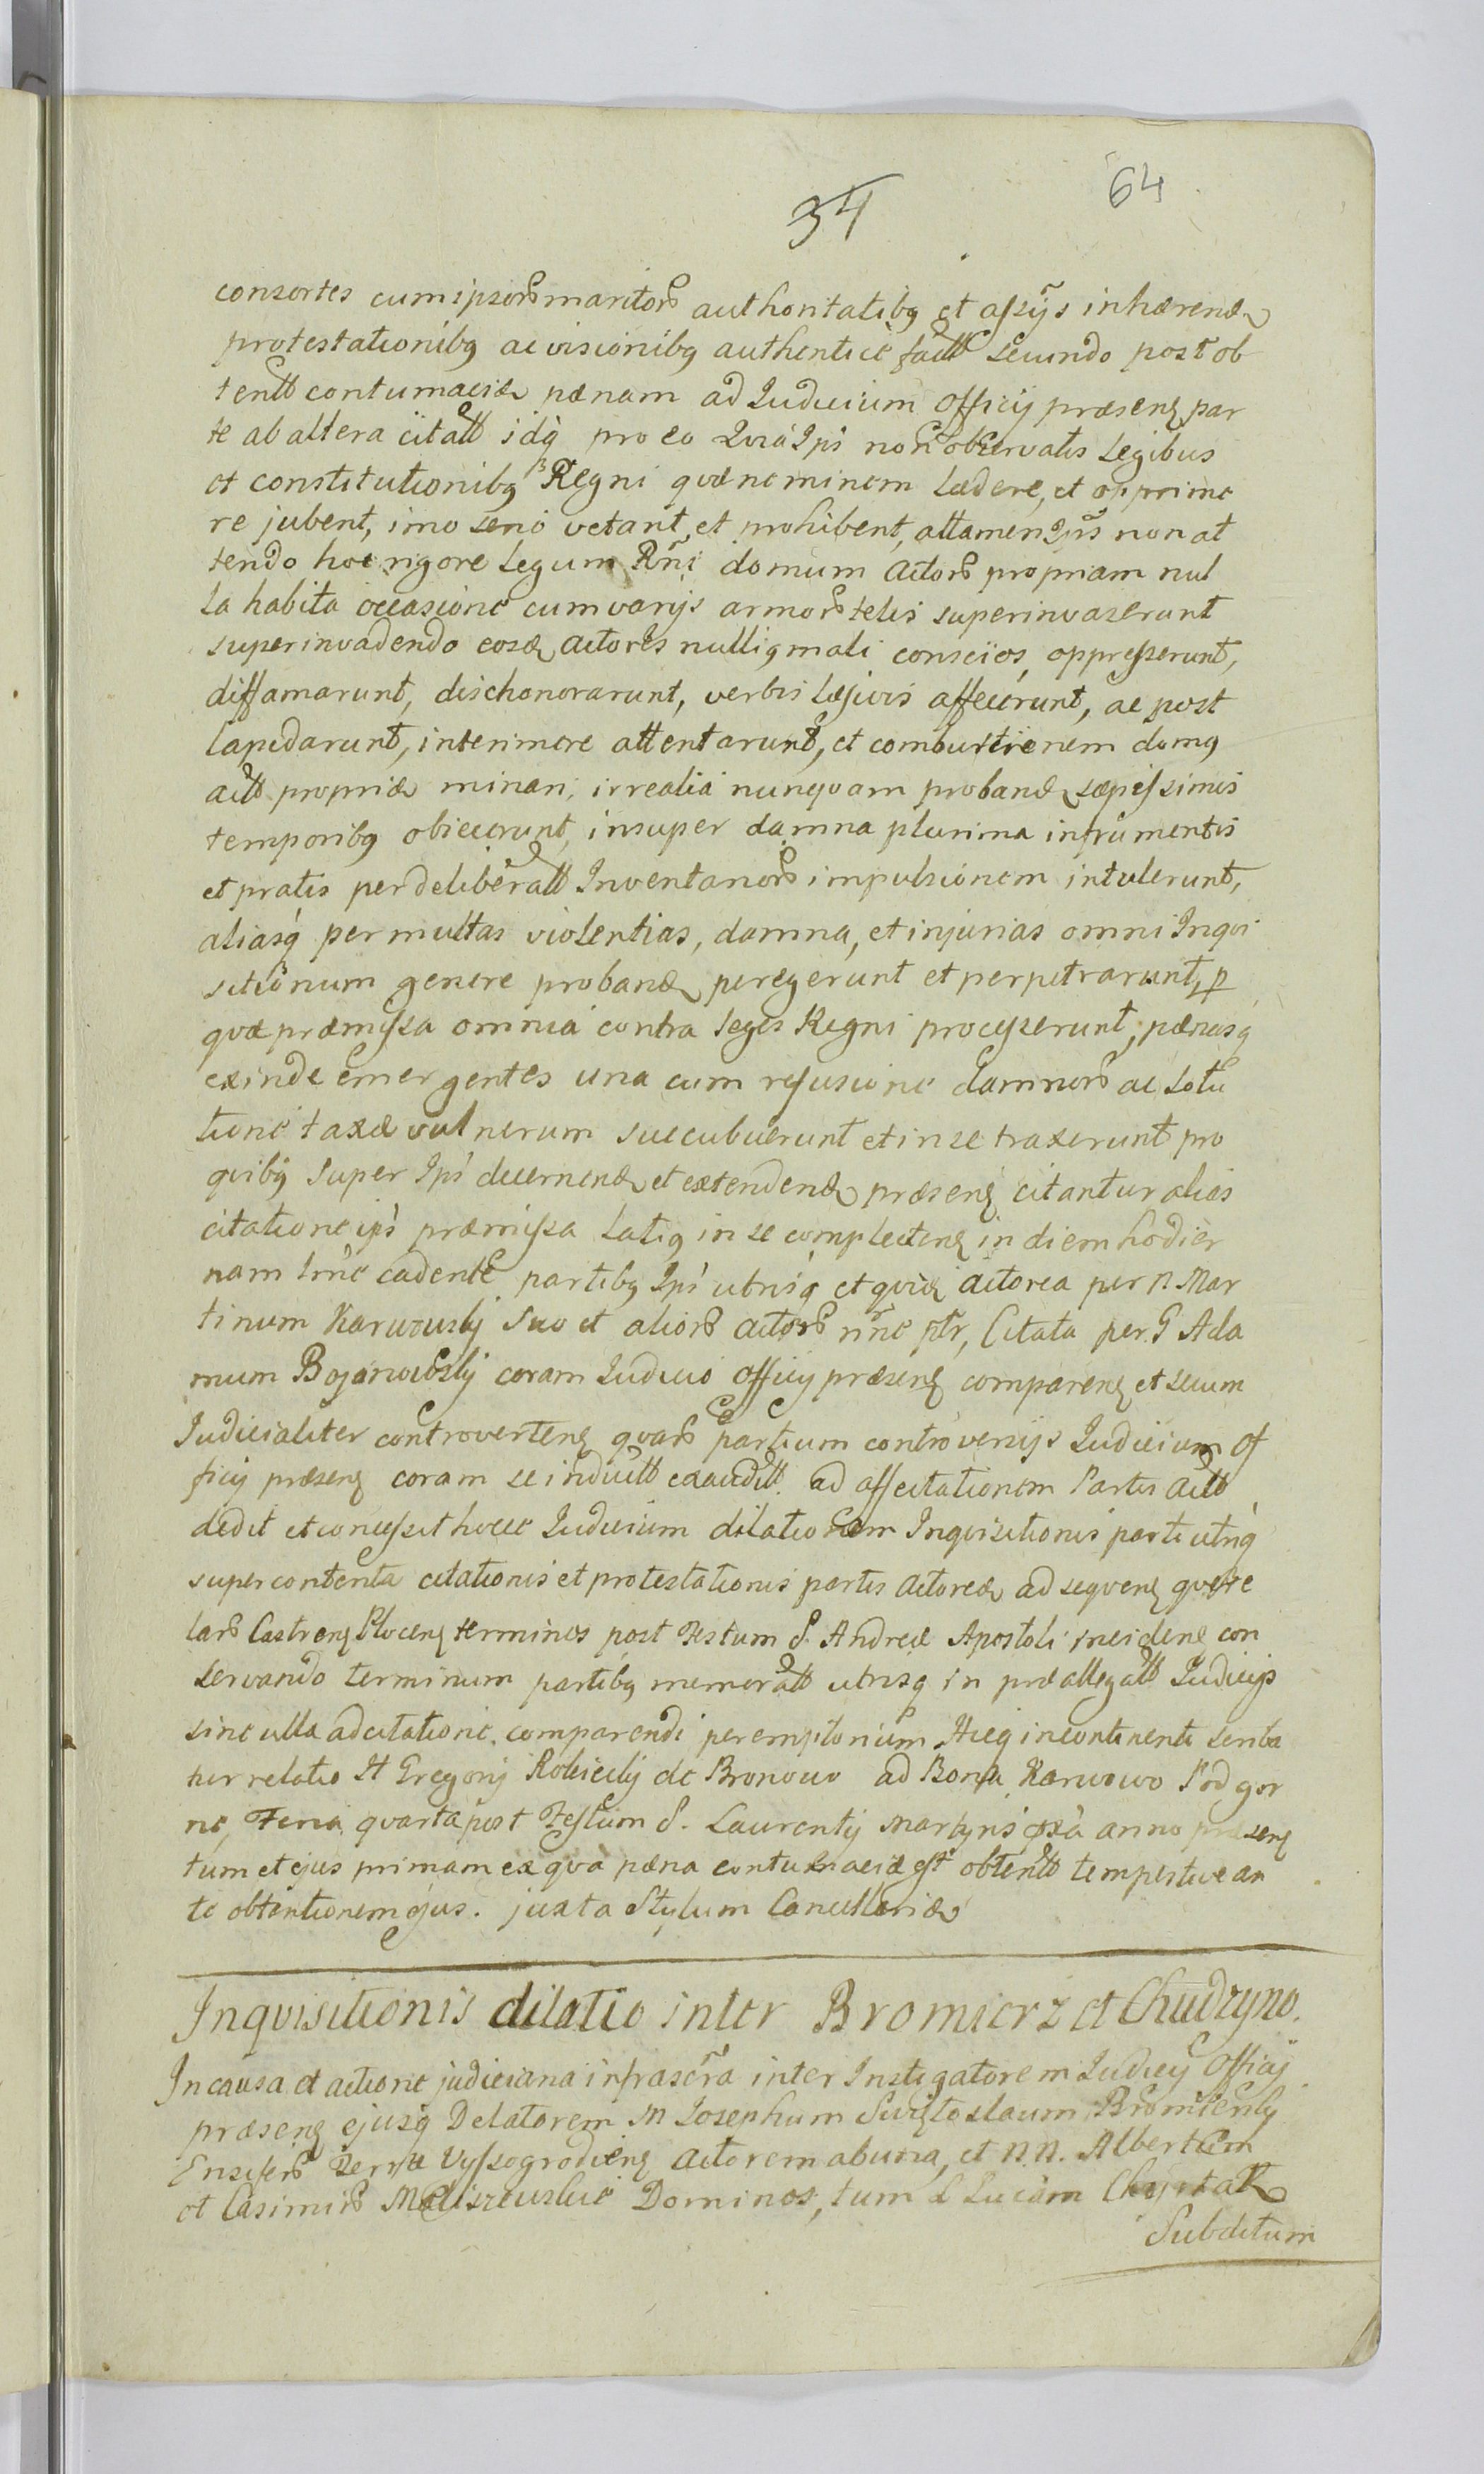 64
34
consortes cum ipsor maritor authoritatibq et assÿs inhærend
protestationibq ac visionibq authentice fact secundo post ob
tent contumaciæ pænam ad Iudicium Officij præsenq par
te ab altera citatt idq pro eo Quia Ipi non observatis Legibus
et constitutionibq Regni quæ neminem Lædere, et opprime
re jubent, imo serio vetant, et prohibent, attamen Ipis non at
tendo hoc rigore Legum Rñi domum Actor propriam nul
la habita occasione cum varijs armor telis superinvaserunt
superinvadendo eosd Actores nulliq mali conscios, oppresserunt,
diffamarunt, dischonorarunt, verbis læsivis affecerunt, ac post
lapidarunt, interimere attentarunt, et combustionem domq
act propriæ minari, irrealia nunquam proband sæpissimis
temporibq obiecerunt, insuper damna plurima in frumentis
et pratis per deliberatt Inventarior impulsionem intulerunt,
aliasq per multas violentias, damna, et injurias omni Inqui
sitionum genere proband peregerunt et perpetrarunt, p
quæ præmissa omnia contra leges Regni processerunt, pænasq
exinde emergentes una cum refusione damnor ac solu
tione taxæ vulnerum succubuerunt et in se traxerunt pro
quibq super Ipi decernend et extendend præsenq citantur alias
citatione ipi præmissa Latiq in se complectenq in diem hodier
nam hinc cadente partibq Ipi utrisq et quid Actorea per N. Mar
tinum Karwowskj Suo et alior Actor nnc ptr, Citata per G Ada
mum Bojanowskj coram Iudicio Officij præsenq comparenq et secum
Iudicialiter controvertenq quar partium controversijs Iudicium Of
ficij præsenq coram se inductt exauditt ad affectationem Partis Act
dedit et concessit hocce Iudicium dilationem Inquisitionis parti utriq
super contenta citationis et protestationis partis Actoreæ ad sequenq quere
lar Castrenq Plocenq terminos post Festum S. Andreæ Apostoli incidenq con
servando terminum partibq memoratt utrisq in præallegatt Iudicijs
sine ulla adcitatione comparendi peremptorium Hicq incontinenti scriba
tur relatio Gregorij de Bronowo ad Bona Karwowo Podgor
ne, Feria quarta post Festum S. Laurentij Martyris pxa anno præsenq
tum et ejus primam ex qua pæna contumaciæ est obtent tempestive an
te obtentionem ejus. juxta Stylum Cancellariæ
Inquisitionis dilatio inter Bromierz et Chudzyno.
In causa et actione judiciaria infrascra inter Instigatorem Iudicij Officij
præsenq ejusq Delatorem M Iosephum Swiętoslaum Bromierskj
Ensifer Terræ Vyssogrodienq Actorem ab una, et N.N. Albertum
et Casimir Maliszewskie Dominos, tum L Lucam
Subditum